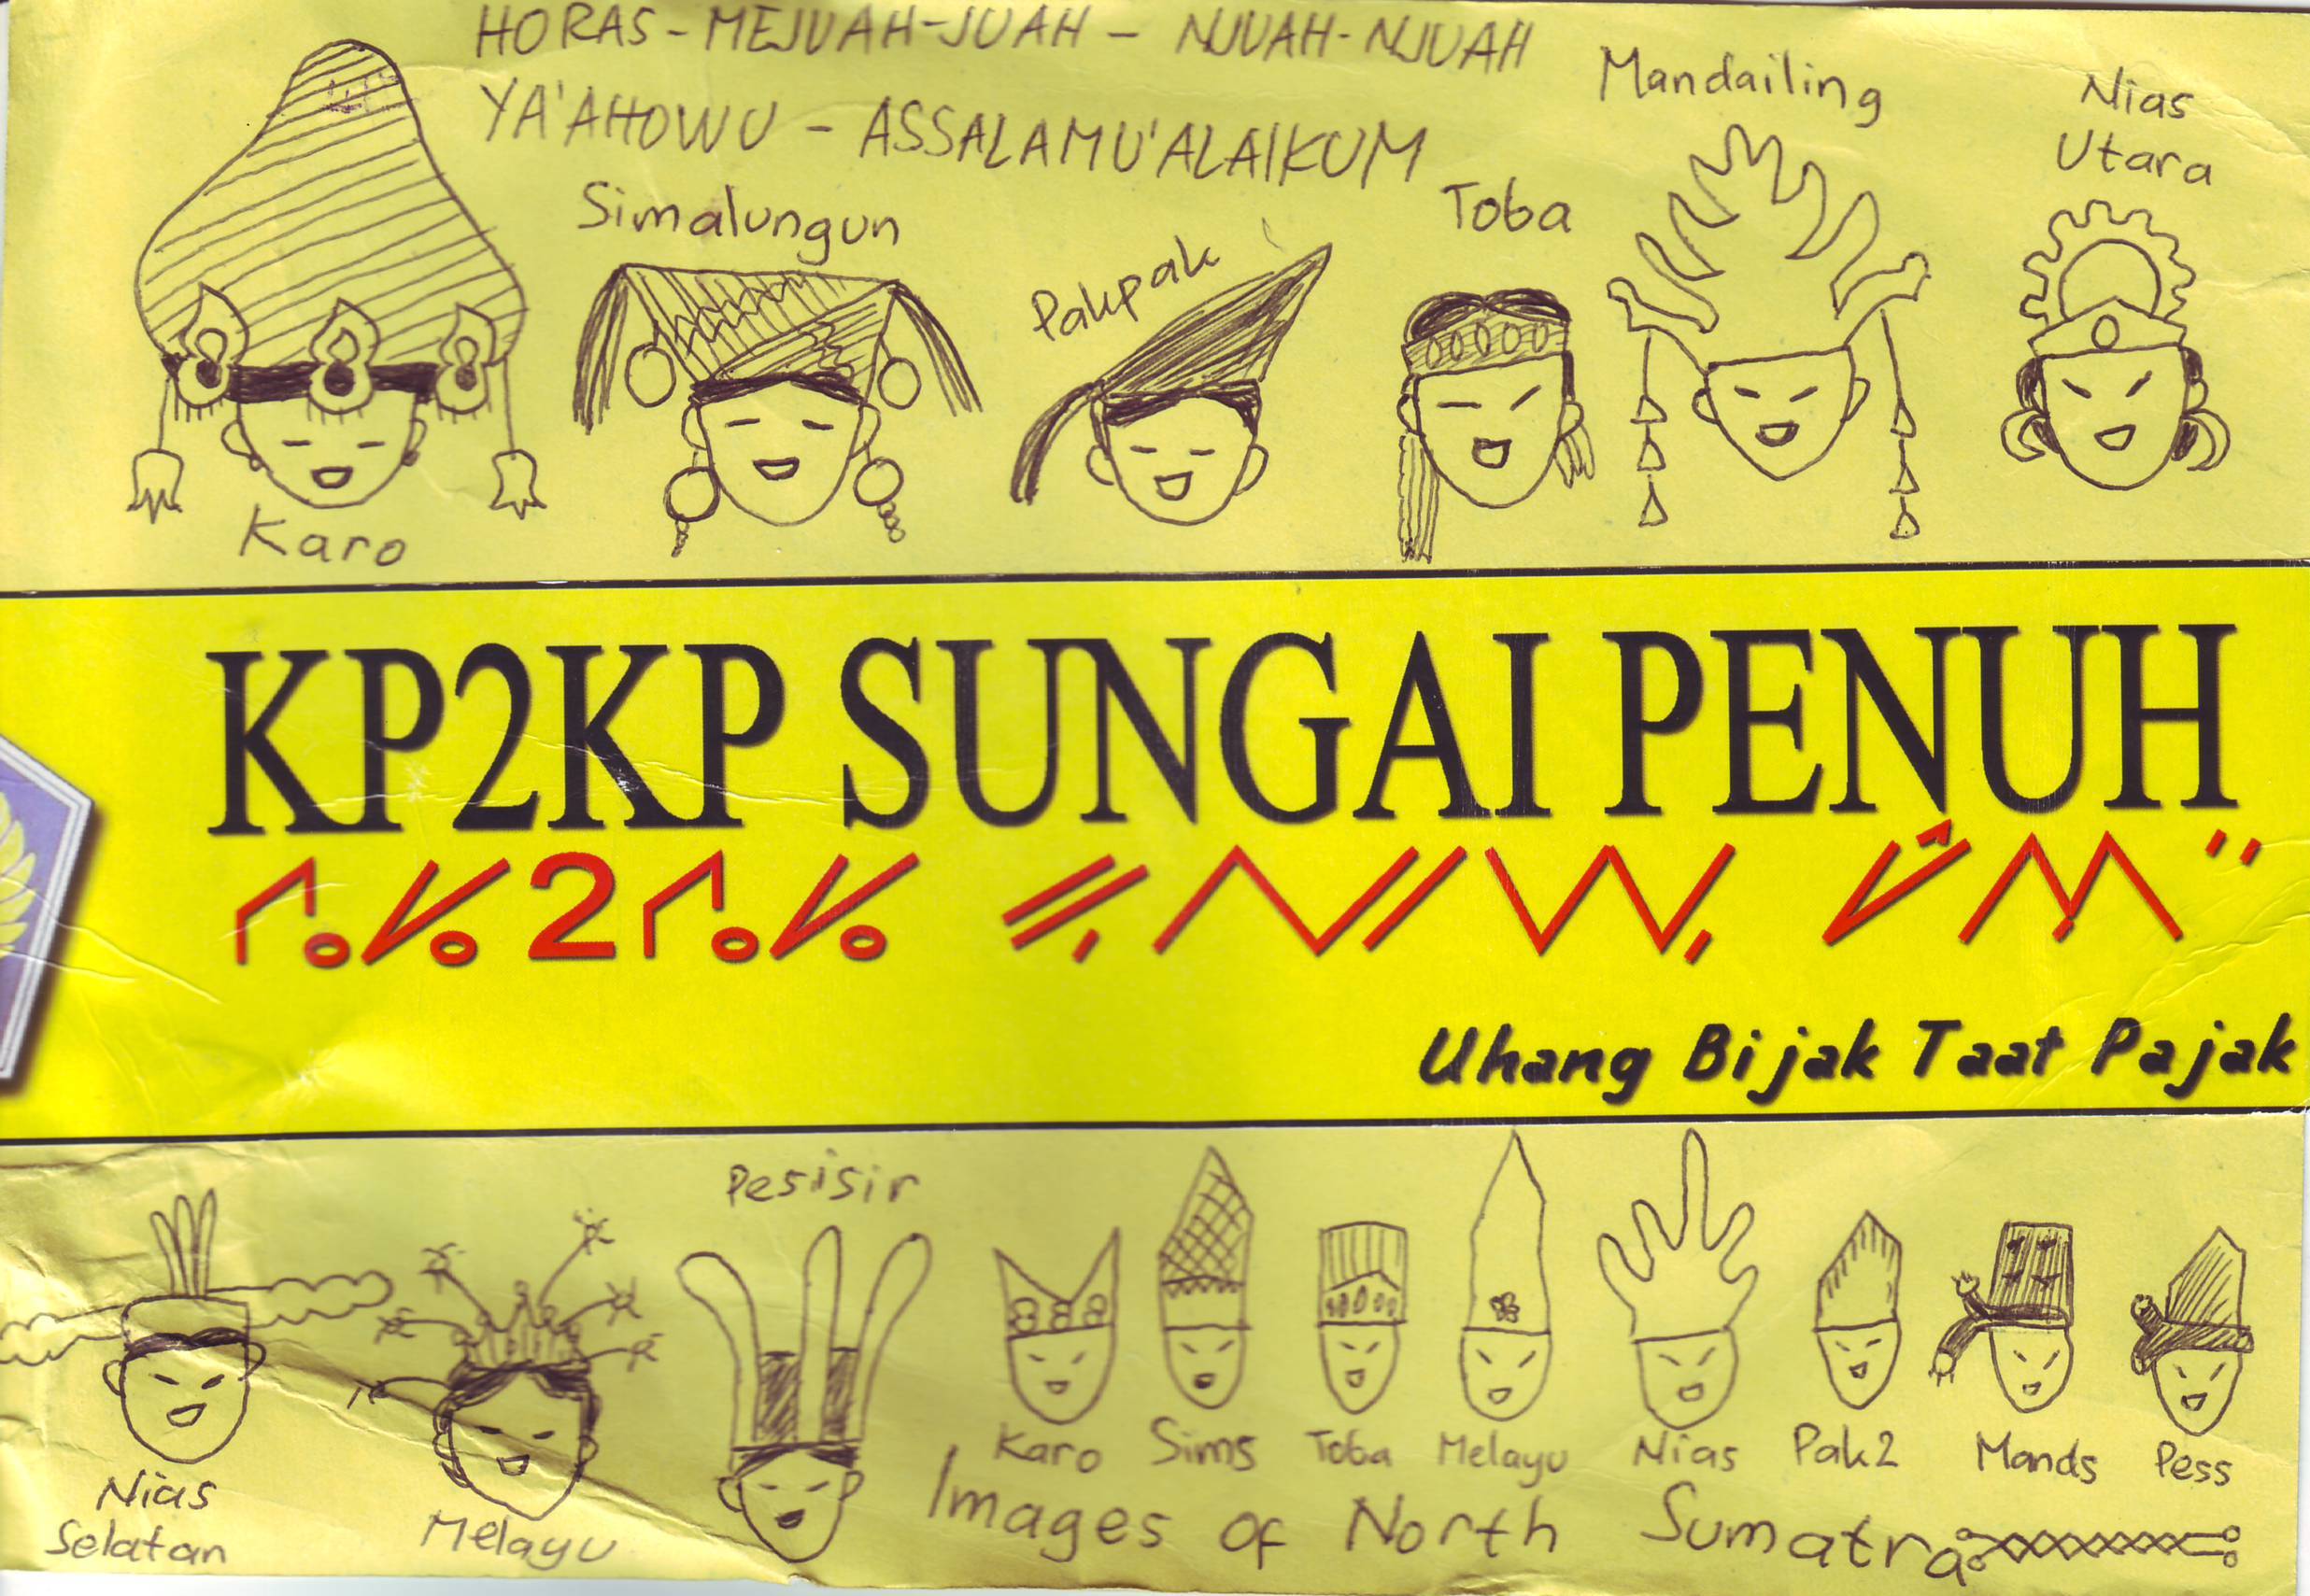 HORAS - MEJUAH-JUAH - NJUAH-NJUAH
YA'AHOWU - ASSALAMU'ALAIKUM
Mandailing
Nias
Utara
Simalungun
Toba
Pakpak
Karo
KP2KP SUNGAI PENUH
Uhang Bijak Taat Pajak
Pesisir
Nias
Selatan
Melayu
Karo Sims Toba Melayu Nias Pak2 Mands Pess
Images of North Sumatra